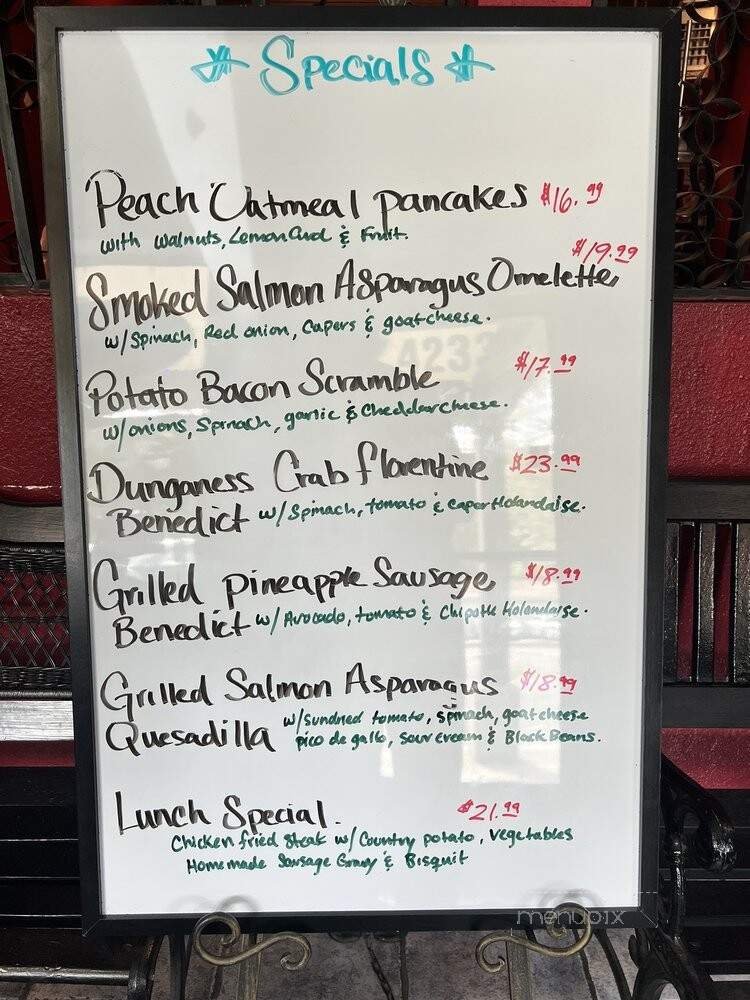 * Specials *
Peach Oatmeal pancakes $16.99
with walnuts, Lemon Curd & Fruit.
$19.99
Smoked Salmon Asparagus Omelette
w/Spinach, Red onion, Capers & goat cheese.
Potato Bacon Scramble $17.99
w/onions, Spinach, garlic & Cheddar cheese.
Dunganess Crab florentine $23.99
Benedict w/Spinach, tomato & caper Holandaise.
Grilled pineapple Sausage $18.99
Benedict w/Avocado, tomato & Chipotle Holandaise.
Grilled Salmon Asparagus $18.99
Quesadilla w/sundried tomato, spinach, goat cheese
pico de gallo, sour cream & Black Beans.
Lunch Special. $21.99
Chicken fried steak w/Country potato, vegetables
Homemade Sausage Gravy & Bisquit
menupix